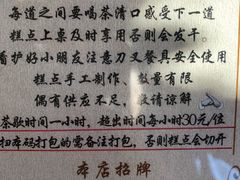 每道之间要喝茶清口感受下一道
糕点上桌及时享用否则会发干。
看护好小朋友注意刀叉餐具安全使用
糕点手工制作，数量有限
偶有供应不足，敬请谅解
茶歇时间一小时，超出时间每小时30元/位
扫本码打包的需备注打包，否则糕点会切开
本店招牌